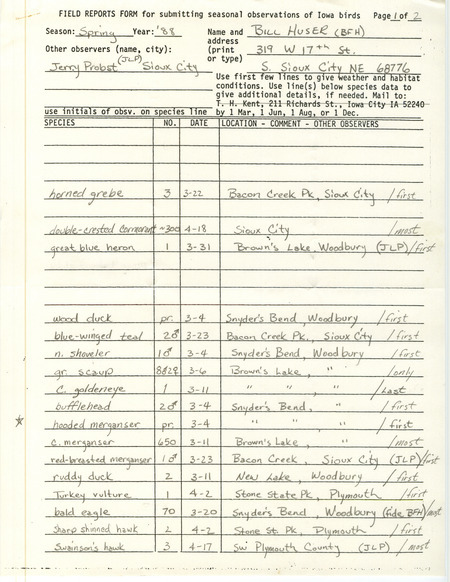 FIELD REPORTS FORM for submitting seasonal observations of Iowa birds Page 1 of 2
Season: Spring Year: '88 Name and BILL HUSER (BFH)
address
Other observers (name, city): (print 319 W 17th St.
or type)
Jerry Probst (JLP) Sioux City S. Sioux City NE 68776
Use first few lines to give weather and habitat
conditions. Use line(s) below species data to
give additional details, if needed. Mail to:
T. H. Kent, 211 Richards St., Iowa City IA 52240
use initials of obsv. on species line by 1 Mar, 1 Jun, 1 Aug, or 1 Dec.
SPECIES NO. DATE LOCATION - COMMENT - OTHER OBSERVERS
horned grebe 3 3-22 Bacon Creek Pk, Sioux City /first
double-crested cormorant ~300 4-18 Sioux City /most
great blue heron 1 3-31 Brown's Lake, Woodbury (JLP)/first
wood duck pr. 3-4 Snyder's Bend, Woodbury /first
blue-winged teal 2♂ 3-23 Bacon Creek Pk., Sioux City /first
n. shoveler 1♂ 3-4 Snyder's Bend, Woodbury /first
gr. scaup 8♂2♀ 3-6 Brown's Lake, " /only
C. goldeneye 1 3-11 " " /Last
bufflehead 2♂ 3-4 Snyder's Bend, " /first
hooded merganser pr. 3-4 " " " /first
C. merganser 650 3-11 Brown's Lake, " /most
red-breasted merganser 1♂ 3-23 Bacon Creek, Sioux City (JLP)/first
ruddy duck 2 3-11 New Lake, Woodbury /first
Turkey vulture 1 4-2 Stone State Pk, Plymouth /first
bald eagle 70 3-20 Snyder's Bend, Woodbury (fide BFH)/most
Sharp shinned hawk 2 4-2 Stone St. Pk, Plymouth /first
Swainson's hawk 3 4-17 SW Plymouth County (JLP) /most